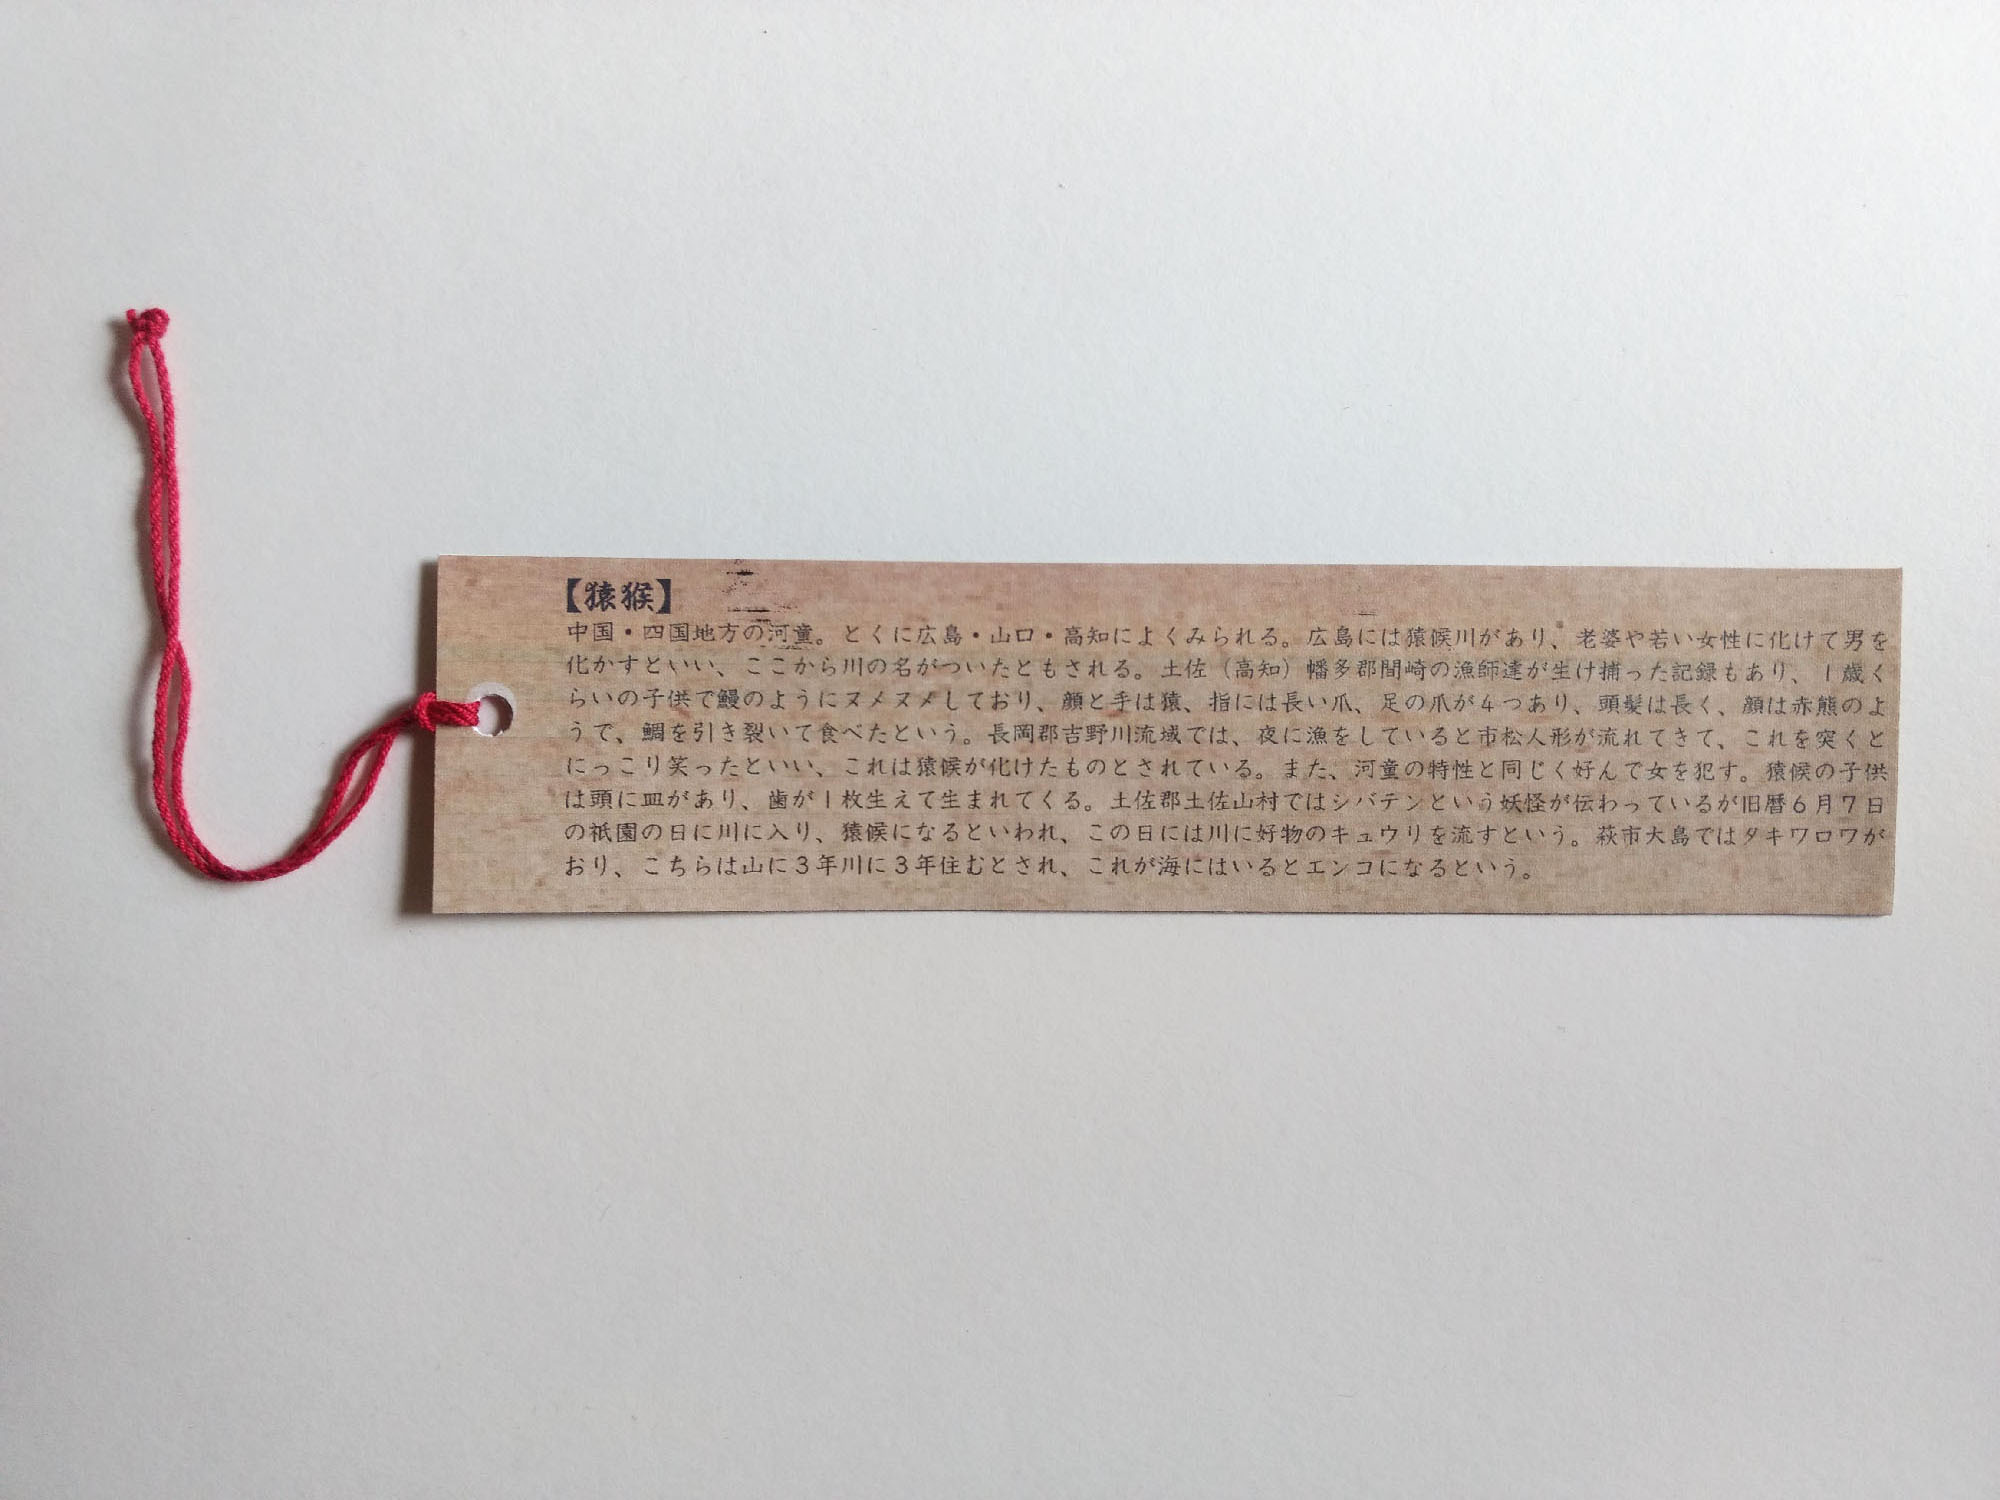 【猿猴】
中国・四国地方の河童。とくに広島・山口・高知によくみられる。広島には猿候川があり、老婆や若い女性に化けて男を
化かすといい、ここから川の名がついたともされる。土佐（高知）幡多郡間崎の漁師達が生け捕った記録もあり、１歳く
らいの子供で鰻のようにヌメヌメしており、顔と手は猿、指には長い爪、足の爪が４つあり、頭髪は長く、顔は赤熊のよ
うで、鯛を引き裂いて食べたという。長岡郡吉野川流域では、夜に漁をしていると市松人形が流れてきて、これを突くと
にっこり笑ったといい、これは猿候が化けたものとされている。また、河童の特性と同じく好んで女を犯す。猿候の子供
は頭に皿があり、歯が１枚生えて生まれてくる。土佐郡土佐山村ではシバテンという妖怪が伝わっているが旧暦６月７日
の祇園の日に川に入り、猿候になるといわれ、この日には川に好物のキュウリを流すという。萩市大島ではタキワロワが
おり、こちらは山に３年川に３年住むとされ、これが海にはいるとエンコになるという。